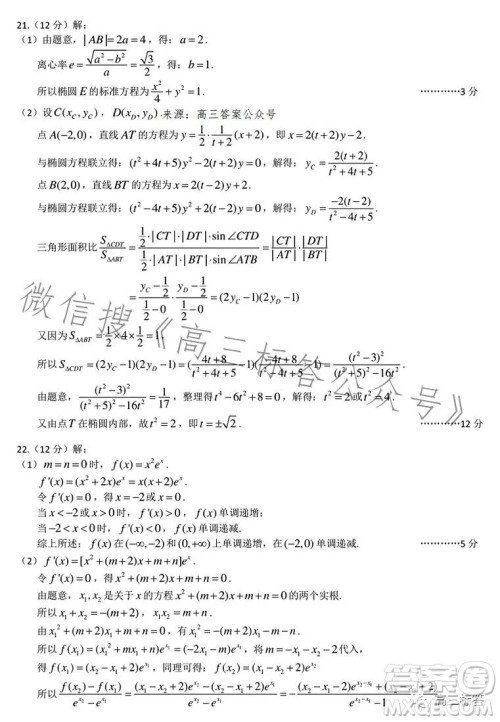 21.(12 分) 解：
(1) 由题意，|AB|=2a=4，得：a=2．
离心率 e=√(a²−b²)/a=√3/2，得：b=1．
所以椭圆 E 的标准方程为 x²/4+y²=1． …………3 分
(2) 设 C(x_C, y_C)，D(x_D, y_D)·来源：高三答案公众号
点 A(−2,0)，直线 AT 的方程为 y=1/2·1/(t+2)(x+2)，即 x=2(t+2)y−2
与椭圆方程联立得：(t²+4t+5)y²−2(t+2)y=0，解得：y_C=2(t+2)/(t²+4t+5)
点 B(2,0)，直线 BT 的方程为 x=2(t−2)y+2
与椭圆方程联立得：(t²−4t+5)y²+2(t−2)y=0，解得：y_D=−2(t−2)/(t²−4t+5)
三角形面积比 S_△CDT/S_△ABT=(1/2·|CT|·|DT|·sin∠CTD)/(1/2·|AT|·|BT|·sin∠ATB)=|CT|/|AT|·|DT|/|BT|
=(y_C−1/2)/(1/2)·(y_D−1/2)/(1/2)=(2y_C−1)(2y_D−1)
又因为 S_△ABT=1/2×4×1/2=1
所以 S_△CDT=(2y_C−1)(2y_D−1)=(4t+8)/(t²+4t+5)−1)
由题意，(t²−3)²/((t²+5)²−16t²)=1/17，整理得：t⁴−6t²+8=0，解得：t²=2或t²=4
又由点 T 在椭圆内部，故 t²=2，即 t=±√2． …………12 分
22.(12 分) 解：
(1) m=n=0 时，f(x)=x²eˣ．
f'(x)=(x²+2x)eˣ=x(x+2)eˣ．
令 f'(x)=0 得：x=0或x=−2．
当 x<−2或x>0 时，f(x) 单调递增；
当 −2<x<0 时，f(x) 单调递减．
综上所述：f(x) 在(−∞,−2)和(0,+∞)上单调递增，在(−2,0)单调递减． …………5 分
(2) f'(x)=[x²+(m+2)x+m+n]eˣ．
令 f'(x)=0 得：x²+(m+2)x+m+n=0．
由题意，x₁,x₂ 是关于 x 的方程 x²+(m+2)x+m+n=0 的两个实根．
所以 x₁+x₂=−(m+2)，x₁x₂=m+n．
由 x₁²+(m+2)x₁+m+n=0 得：x₁²=−(m+2)x₁−m−n，
所以 f(x₁)=(x₁²+mx₁+n)e^x₁=(−2x₁−m)e^x₁，将 m=−2−x₁−x₂
得：f(x₁)=(x₂−x₁+2)e^x₁，同理可得：f(x₂)=(x₁−x₂+2)e^x₂，